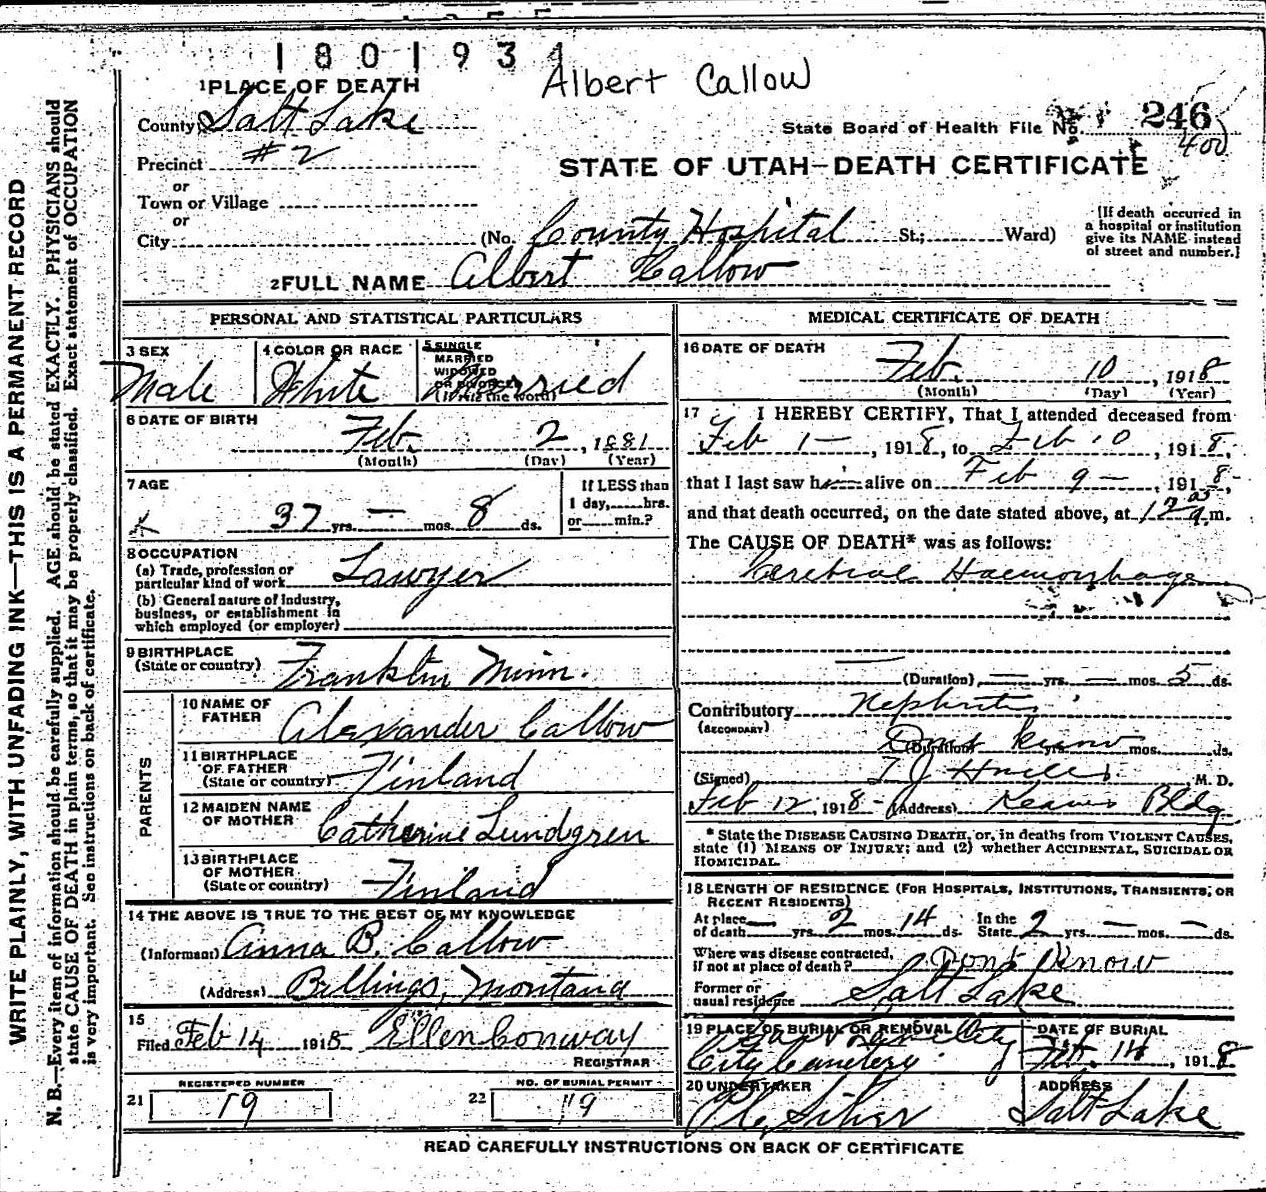 1801934
Albert Callow
1 PLACE OF DEATH
County Salt Lake
State Board of Health File No. 246
400
Precinct #2
STATE OF UTAH—DEATH CERTIFICATE
or
Town or Village
or
City (No. County Hospital St.; Ward)
[If death occurred in
a hospital or institution
give its NAME instead
of street and number.]
2 FULL NAME Albert Callow
PERSONAL AND STATISTICAL PARTICULARS
3 SEX
Male
4 COLOR OR RACE
White
5 SINGLE
MARRIED
WIDOWED
OR DIVORCED
(Write the word)
Married
6 DATE OF BIRTH
Feb. 2, 1881
(Month) (Day) (Year)
7 AGE
37 yrs. — mos. 8 ds.
If LESS than
1 day, hrs.
or min.?
8 OCCUPATION
(a) Trade, profession or
particular kind of work Lawyer
(b) General nature of industry,
business, or establishment in
which employed (or employer)
9 BIRTHPLACE
(State or country) Franklin Minn.
PARENTS
10 NAME OF
FATHER Alexander Callow
11 BIRTHPLACE
OF FATHER
(State or country) Finland
12 MAIDEN NAME
OF MOTHER Catherine Lundgren
13 BIRTHPLACE
OF MOTHER
(State or country) Finland
14 THE ABOVE IS TRUE TO THE BEST OF MY KNOWLEDGE
(Informant) Anna B. Callow
(Address) Billings, Montana
15
Filed Feb 14 1918 Ellen Conway
REGISTRAR
REGISTERED NUMBER
21 79
NO. OF BURIAL PERMIT
22 119
MEDICAL CERTIFICATE OF DEATH
16 DATE OF DEATH
Feb. 10, 1918
(Month) (Day) (Year)
17 I HEREBY CERTIFY, That I attended deceased from
Feb 1 — , 1918, to Feb 10, 1918,
that I last saw h alive on Feb 9 — , 1918,
and that death occurred, on the date stated above, at 12 05 a.m.
The CAUSE OF DEATH* was as follows:
Cerebral Haemorrhage
(Duration) — yrs. — mos. 5 ds.
Contributory Nephritis
(SECONDARY)
Dont know
(Duration) yrs. mos. ds.
(Signed) T J M. D.
Feb 12, 1918 - (Address) Kearns Bldg
* State the DISEASE CAUSING DEATH, or, in deaths from VIOLENT CAUSES,
state (1) MEANS OF INJURY; and (2) whether ACCIDENTAL, SUICIDAL OR
HOMICIDAL.
18 LENGTH OF RESIDENCE (FOR HOSPITALS, INSTITUTIONS, TRANSIENTS, OR
RECENT RESIDENTS)
At place
of death — yrs. 2 mos. 14 ds. In the
State 2 yrs. — mos. — ds.
Where was disease contracted,
if not at place of death? Dont Know
Former or
usual residence Salt Lake
19 PLACE OF BURIAL OR REMOVAL
Salt Lake City
City Cemetery
DATE OF BURIAL
Feb. 14, 1918
20 UNDERTAKER
Silver
ADDRESS
Salt Lake
READ CAREFULLY INSTRUCTIONS ON BACK OF CERTIFICATE
WRITE PLAINLY, WITH UNFADING INK—THIS IS A PERMANENT RECORD
N. B.—Every item of information should be carefully supplied. AGE should be stated EXACTLY. PHYSICIANS should
state CAUSE OF DEATH in plain terms, so that it may be properly classified. Exact statement of OCCUPATION
is very important. See instructions on back of certificate.